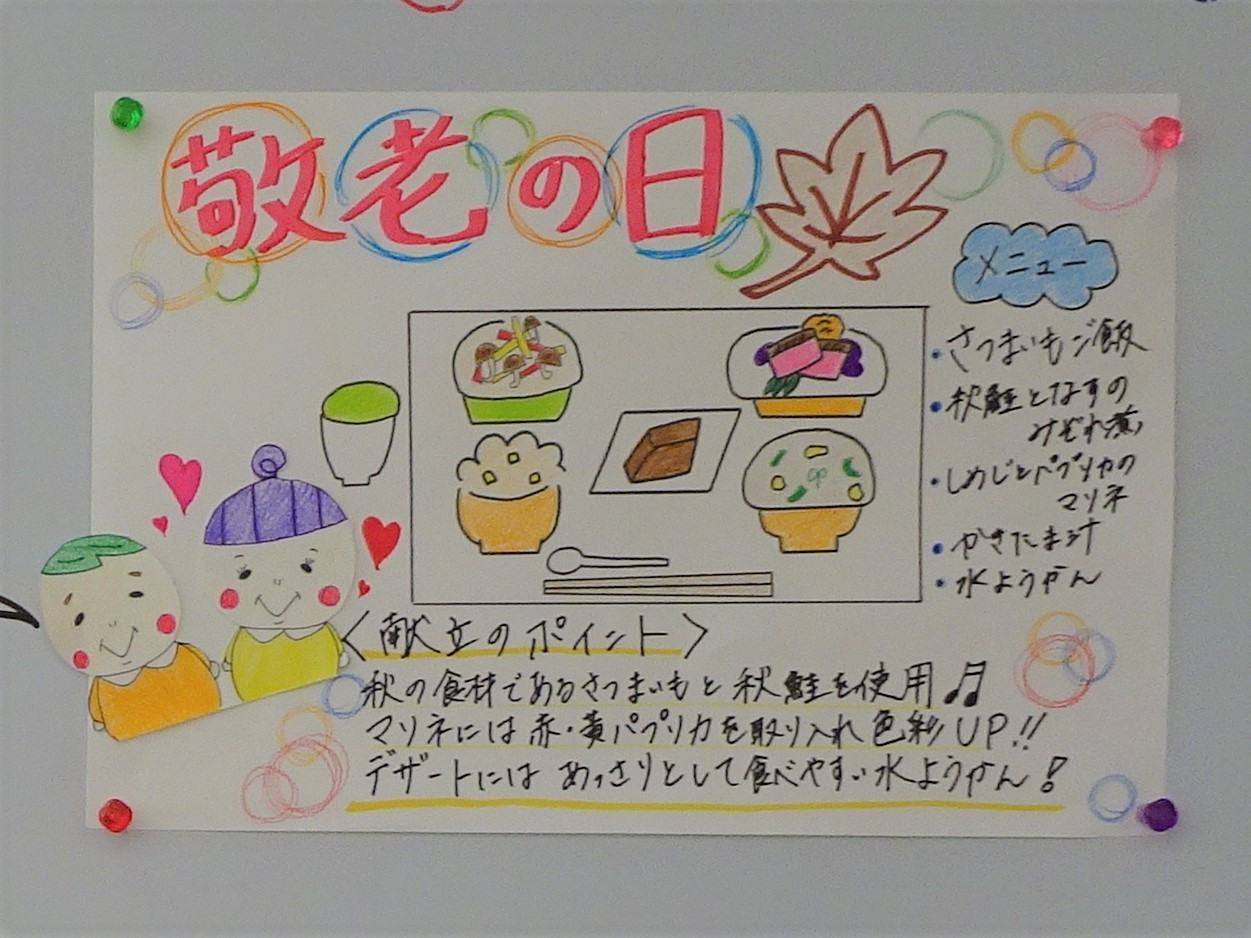 敬老の日
メニュー
・さつまいもご飯
・秋鮭となすの
みぞれ煮
・しめじとパプリカの
マリネ
・かきたま汁
・水ようかん
〈献立のポイント〉
秋の食材であるさつまいもと秋鮭を使用♫
マリネには赤・黄パプリカを取り入れ色彩UP!!
デザートにはあっさりとして食べやすい水ようかん!